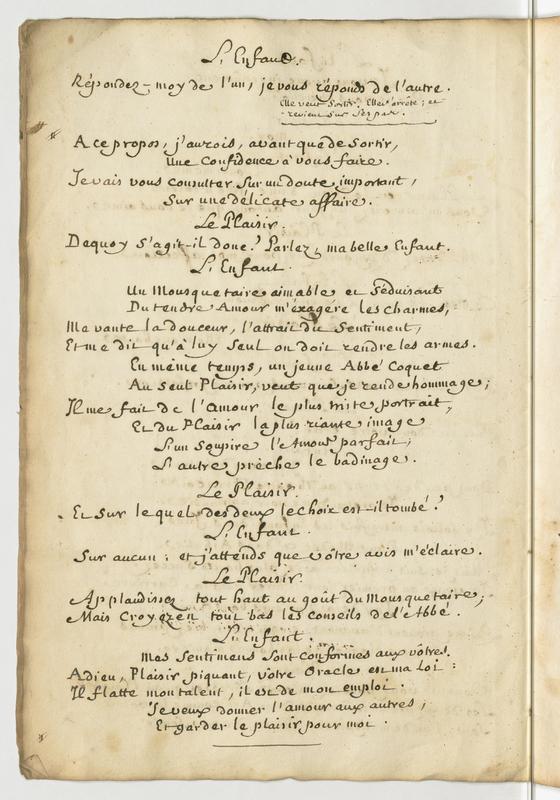 L'Enfant.
Répondez-moy de l'un, je vous réponds de l'autre.
Elle veut Sortir. Elle s'arrête ; et
revient sur ses pas.
A ce propos, j'aurois, avant que de Sortir,
Une Confidence à vous faire.
Je vais vous consulter Sur un doute important,
Sur une délicate affaire.
Le Plaisir.
De quoy S'agit-il donc? Parlez, ma belle Enfant.
L'Enfant.
Un Mousquetaire aimable et Séduisant
Du tendre Amour m'éxagére les charmes,
Me vante la douceur, l'attrait du Sentiment,
Et me dit qu'à luy Seul on doit rendre les armes.
En même temps, un jeune Abbé Coquet
Au Seul Plaisir, veut que je rende hommage ;
Il me fait de l'Amour le plus triste portrait,
Et du Plaisir la plus riante image
L'un Soupire l'Amour parfait ;
L'autre prêche le badinage.
Le Plaisir.
Et Sur lequel des deux le choix est-il tombé?
L'Enfant.
Sur aucun : et j'attends que vôtre avis m'éclaire.
Le Plaisir.
Applaudissez tout haut au goût du Mousquetaire ;
Mais Croyez en tout bas les Conseils de l'Abbé.
L'Enfant.
Mes Sentimens Sont conformes aux vôtres.
Adieu, Plaisir piquant, vôtre Oracle est ma Loi :
Il flatte mon talent, il est de mon emploi.
Je veux donner l'amour aux autres ;
Et garder le plaisir pour moi.